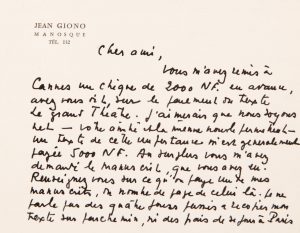 JEAN GIONO
MANOSQUE
TÉL. 112
Cher ami,
vous m'avez remis à
Cannes un chèque de 2000 NF. en avance,
avez vous dit, sur le paiement du texte
le grand Théâtre. J'aimerais que nous soyons
net - votre amitié et la mienne nous le permettent -
un texte de cette importance m'est généralement
payé 5000 NF. Au surplus vous m'avez
demandé le manuscrit, que vous avez eu.
Renseignez vous sur ce qu'on paye un de mes
manuscrits, du nombre de page de celui là. Je ne
parle pas des quatre jours passés à recopier mon
texte sur parchemin, ni des frais de séjour à Paris